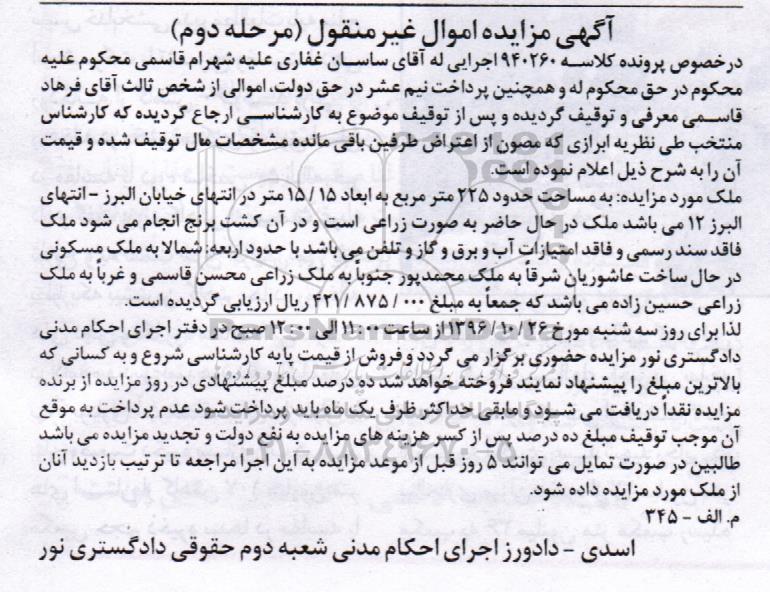 آگهی مزایده اموال غیر منقول (مرحله دوم)
درخصوص پرونده کلاسه ۹۴۰۲۶۰ اجرایی له آقای ساسان غفاری علیه شهرام قاسمی محکوم علیه
محکوم در حق محکوم له و همچنین پرداخت نیم عشر در حق دولت، اموالی از شخص ثالث آقای فرهاد
قاسمی معرفی و توقیف گردیده و پس از توقیف موضوع به کارشناسی ارجاع گردیده که کارشناس
منتخب طی نظریه ابرازی که مصون از اعتراض طرفین باقی مانده مشخصات مال توقیف شده و قیمت
آن را به شرح ذیل اعلام نموده است.
ملک مورد مزایده: به مساحت حدود ۲۲۵ متر مربع به ابعاد ۱۵/۱۵ متر در انتهای خیابان البرز - انتهای
البرز ۱۲ می باشد ملک در حال حاضر به صورت زراعی است و در آن کشت برنج انجام می شود ملک
فاقد سند رسمی و فاقد امتیازات آب و برق و گاز و تلفن می باشد با حدود اربعه: شمالا به ملک مسکونی
در حال ساخت عاشوریان شرقاً به ملک محمدپور جنوباً به ملک زراعی محسن قاسمی و غرباً به ملک
زراعی حسین زاده می باشد که جمعاً به مبلغ ۴۲۱/۸۷۵/۰۰۰ ریال ارزیابی گردیده است.
لذا برای روز سه شنبه مورخ ۱۳۹۶/۱۰/۲۶ از ساعت ۱۱:۰۰ الی ۱۲:۰۰ صبح در دفتر اجرای احکام مدنی
دادگستری نور مزایده حضوری برگزار می گردد و فروش از قیمت پایه کارشناسی شروع و به کسانی که
بالاترین مبلغ را پیشنهاد نمایند فروخته خواهد شد ده درصد مبلغ پیشنهادی در روز مزایده از برنده
مزایده نقداً دریافت می شود و مابقی حداکثر ظرف یک ماه باید پرداخت شود عدم پرداخت به موقع
آن موجب توقیف مبلغ ده درصد پس از کسر هزینه های مزایده به نفع دولت و تجدید مزایده می باشد
طالبین در صورت تمایل می توانند ۵ روز قبل از موعد مزایده به این اجرا مراجعه تا ترتیب بازدید آنان
از ملک مورد مزایده داده شود.
م. الف - ۳۴۵
اسدی - دادورز اجرای احکام مدنی شعبه دوم حقوقی دادگستری نور
ParsNamadData
۰۲۱-۸۸۳۴۹۶۷۰-۵